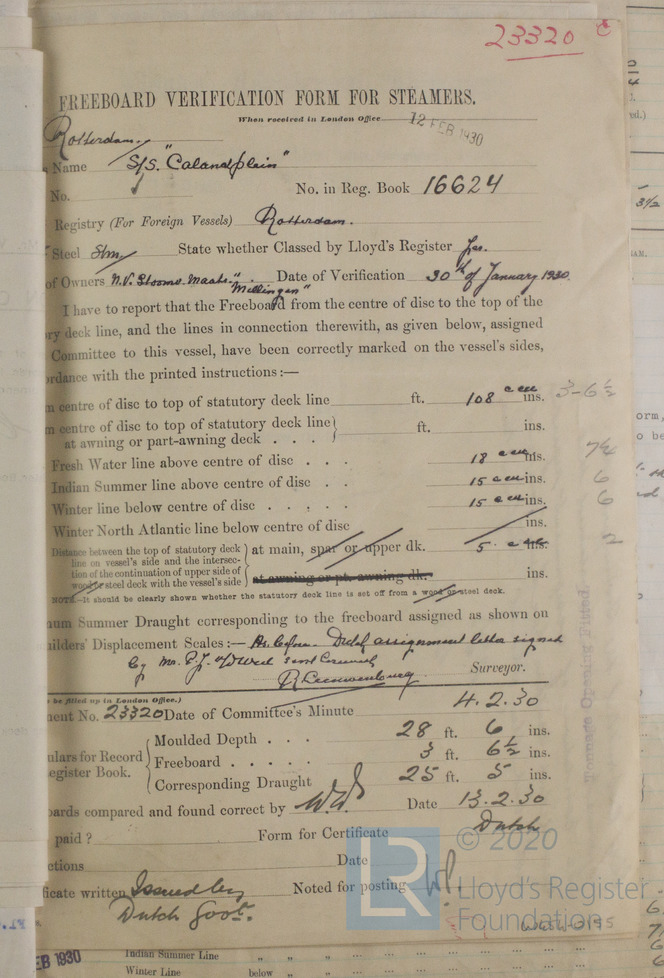 23320
FREEBOARD VERIFICATION FORM FOR STEAMERS.
When received in London Office 12 FEB 1930
Rotterdam.
Name S/S. "Calandplein"
No. No. in Reg. Book 16624
Registry (For Foreign Vessels) Rotterdam.
Steel Stm State whether Classed by Lloyd's Register Yes.
of Owners N.V. Stoomv. Maats. "Millingen" Date of Verification 30th of January 1930.
I have to report that the Freeboard from the centre of disc to the top of the
ry deck line, and the lines in connection therewith, as given below, assigned
Committee to this vessel, have been correctly marked on the vessel's sides,
rdance with the printed instructions:—
m centre of disc to top of statutory deck line ft. 108 c.m. ins. 3-6½
m centre of disc to top of statutory deck line
at awning or part-awning deck . . . ft. ins.
Fresh Water line above centre of disc . . . 18 c.m. ins.
Indian Summer line above centre of disc . . 15 c.m. ins. 6
Winter line below centre of disc . . . . . 15 c.m. ins. 6
Winter North Atlantic line below centre of disc ins.
Distance between the top of statutory deck
line on vessel's side and the intersec-
tion of the continuation of upper side of
wood or steel deck with the vessel's side
at main, spar or upper dk. 5. c.m. ins. 2
at awning or pt. awning dk. ins.
NOTE.—It should be clearly shown whether the statutory deck line is set off from a wood or steel deck.
um Summer Draught corresponding to the freeboard assigned as shown on
uilders' Displacement Scales:— As before. Dutch assignment letter signed
by Mr.
Surveyor.
be filled up in London Office.)
ment No. 23320 Date of Committee's Minute 4.2.30
ulars for Record
egister Book.
Moulded Depth . . . 28 ft. 6 ins.
Freeboard . . . . . 3 ft. 6½ ins.
Corresponding Draught 25 ft. 5 ins.
oards compared and found correct by Date 13.2.30
paid ? Form for Certificate Dutch
ctions Date
ficate written Issued by Noted for posting
Dutch Govt.
Tonnage Opening Fitted
© 2020
LR
Lloyd's Register
Foundation
EB 1930
Indian Summer Line
Winter Line below